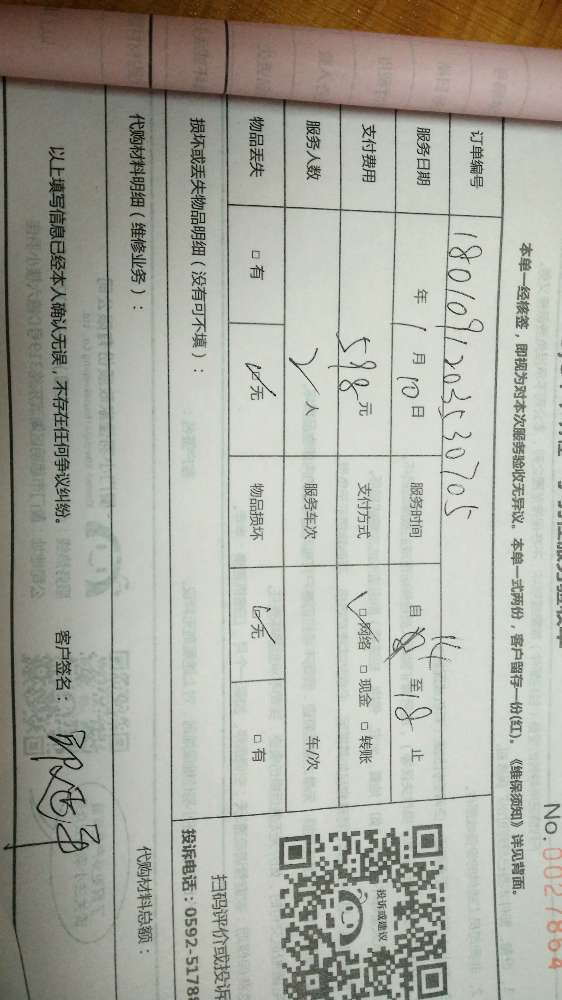 服务验收单
No.0027864
本单一经核签，即视为对本次服务验收无异议。本单一式两份，客户留存一份(红)。《维保须知》详见背面。
订单编号 1801091203530705
服务日期 年 1 月 10 日 服务时间 自 14 至 18 止
支付费用 598 元 支付方式 ☑网络 □现金 □转账
服务人数 2 人 服务车次 车/次
物品丢失 □有 ☑无 物品损坏 ☑无 □有
损坏或丢失物品明细（没有可不填）：
投诉或建议
扫码评价或投诉
投诉电话：0592-5178
代购材料明细（维修业务）： 代购材料总额：
以上填写信息已经本人确认无误，不存在任何争议纠纷。 客户签名：